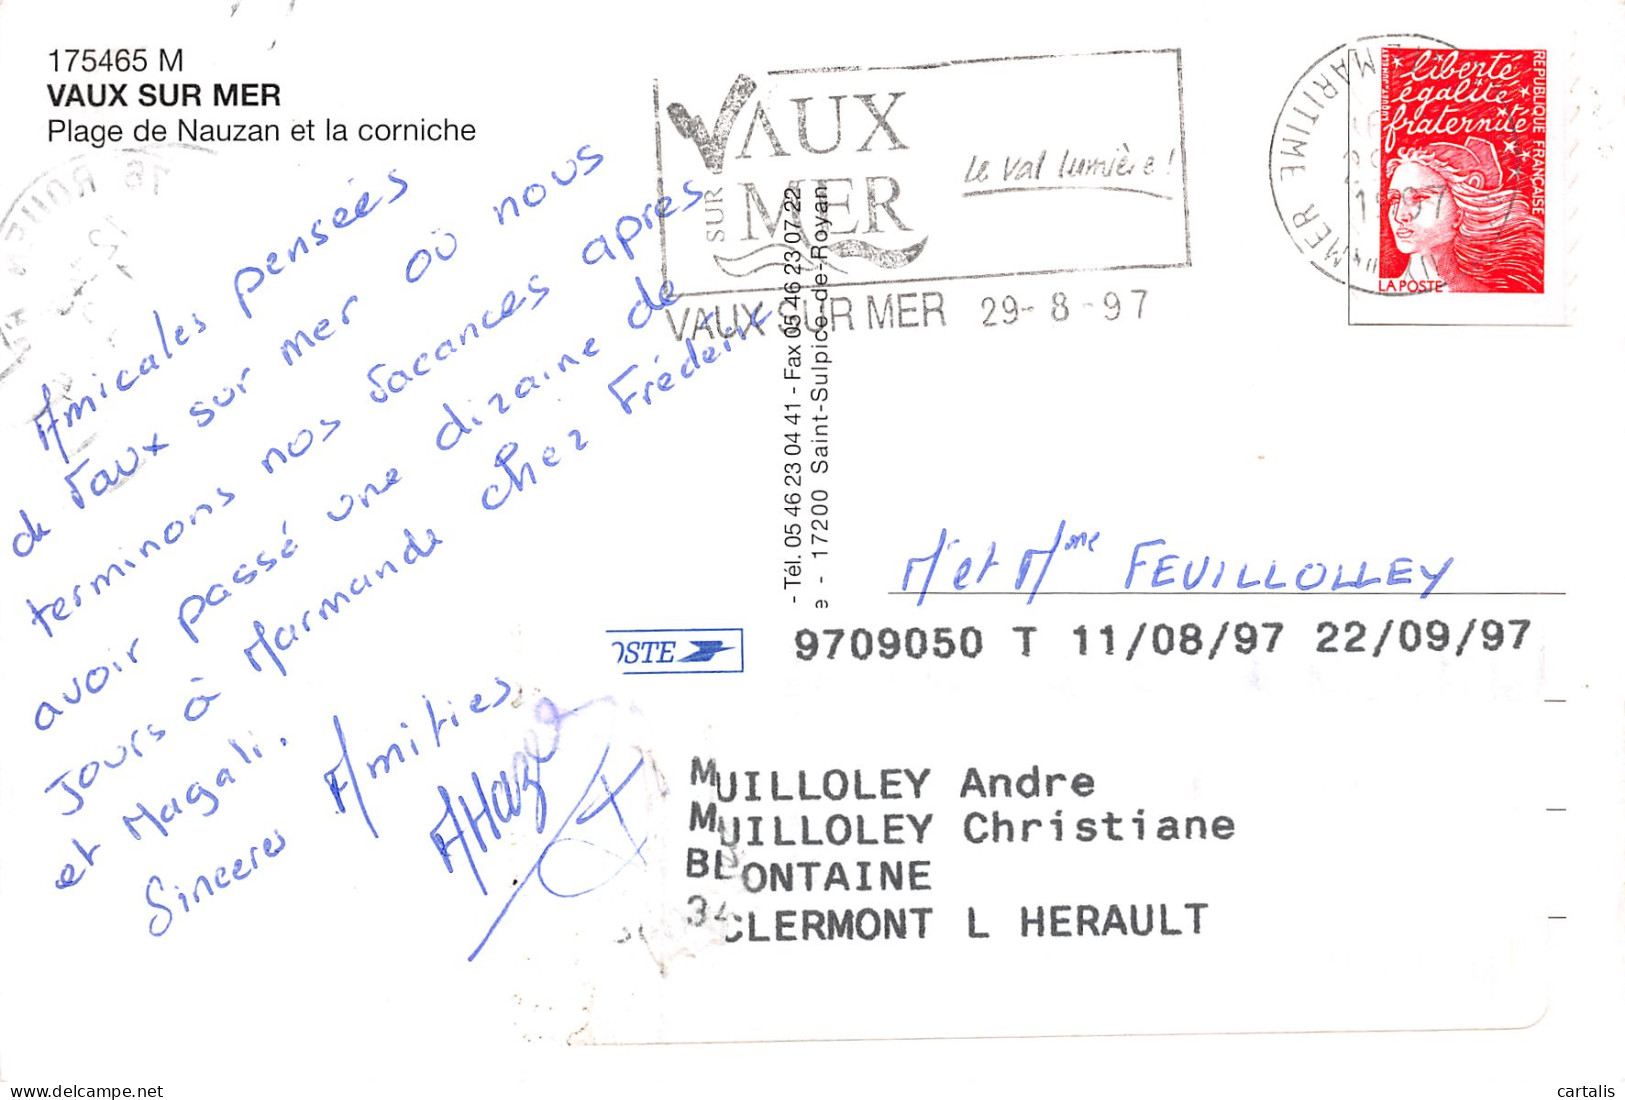 175465 M
VAUX SUR MER
Plage de Nauzan et la corniche
Amicales pensées
de Vaux sur mer où nous
terminons nos vacances apres
avoir passé une dizaine de
Jours à Marmande chez Frédéric
et Magali.
Sinceres Amitiés
VAUX
SUR MER
le val lumière !
VAUX SUR MER 29-8-97
MARITIME
MER
liberté
égalité
fraternité
RÉPUBLIQUE FRANÇAISE
LA POSTE
- Tél. 05 46 23 04 41 - Fax 05 46 23 07 22
e - 17200 Saint-Sulpice-de-Royan
Mr et Mme FEUILLOLLEY
OSTE
9709050 T 11/08/97 22/09/97
MUILLOLEY Andre
MUILLOLEY Christiane
BLONTAINE
34CLERMONT L HERAULT
cartalis